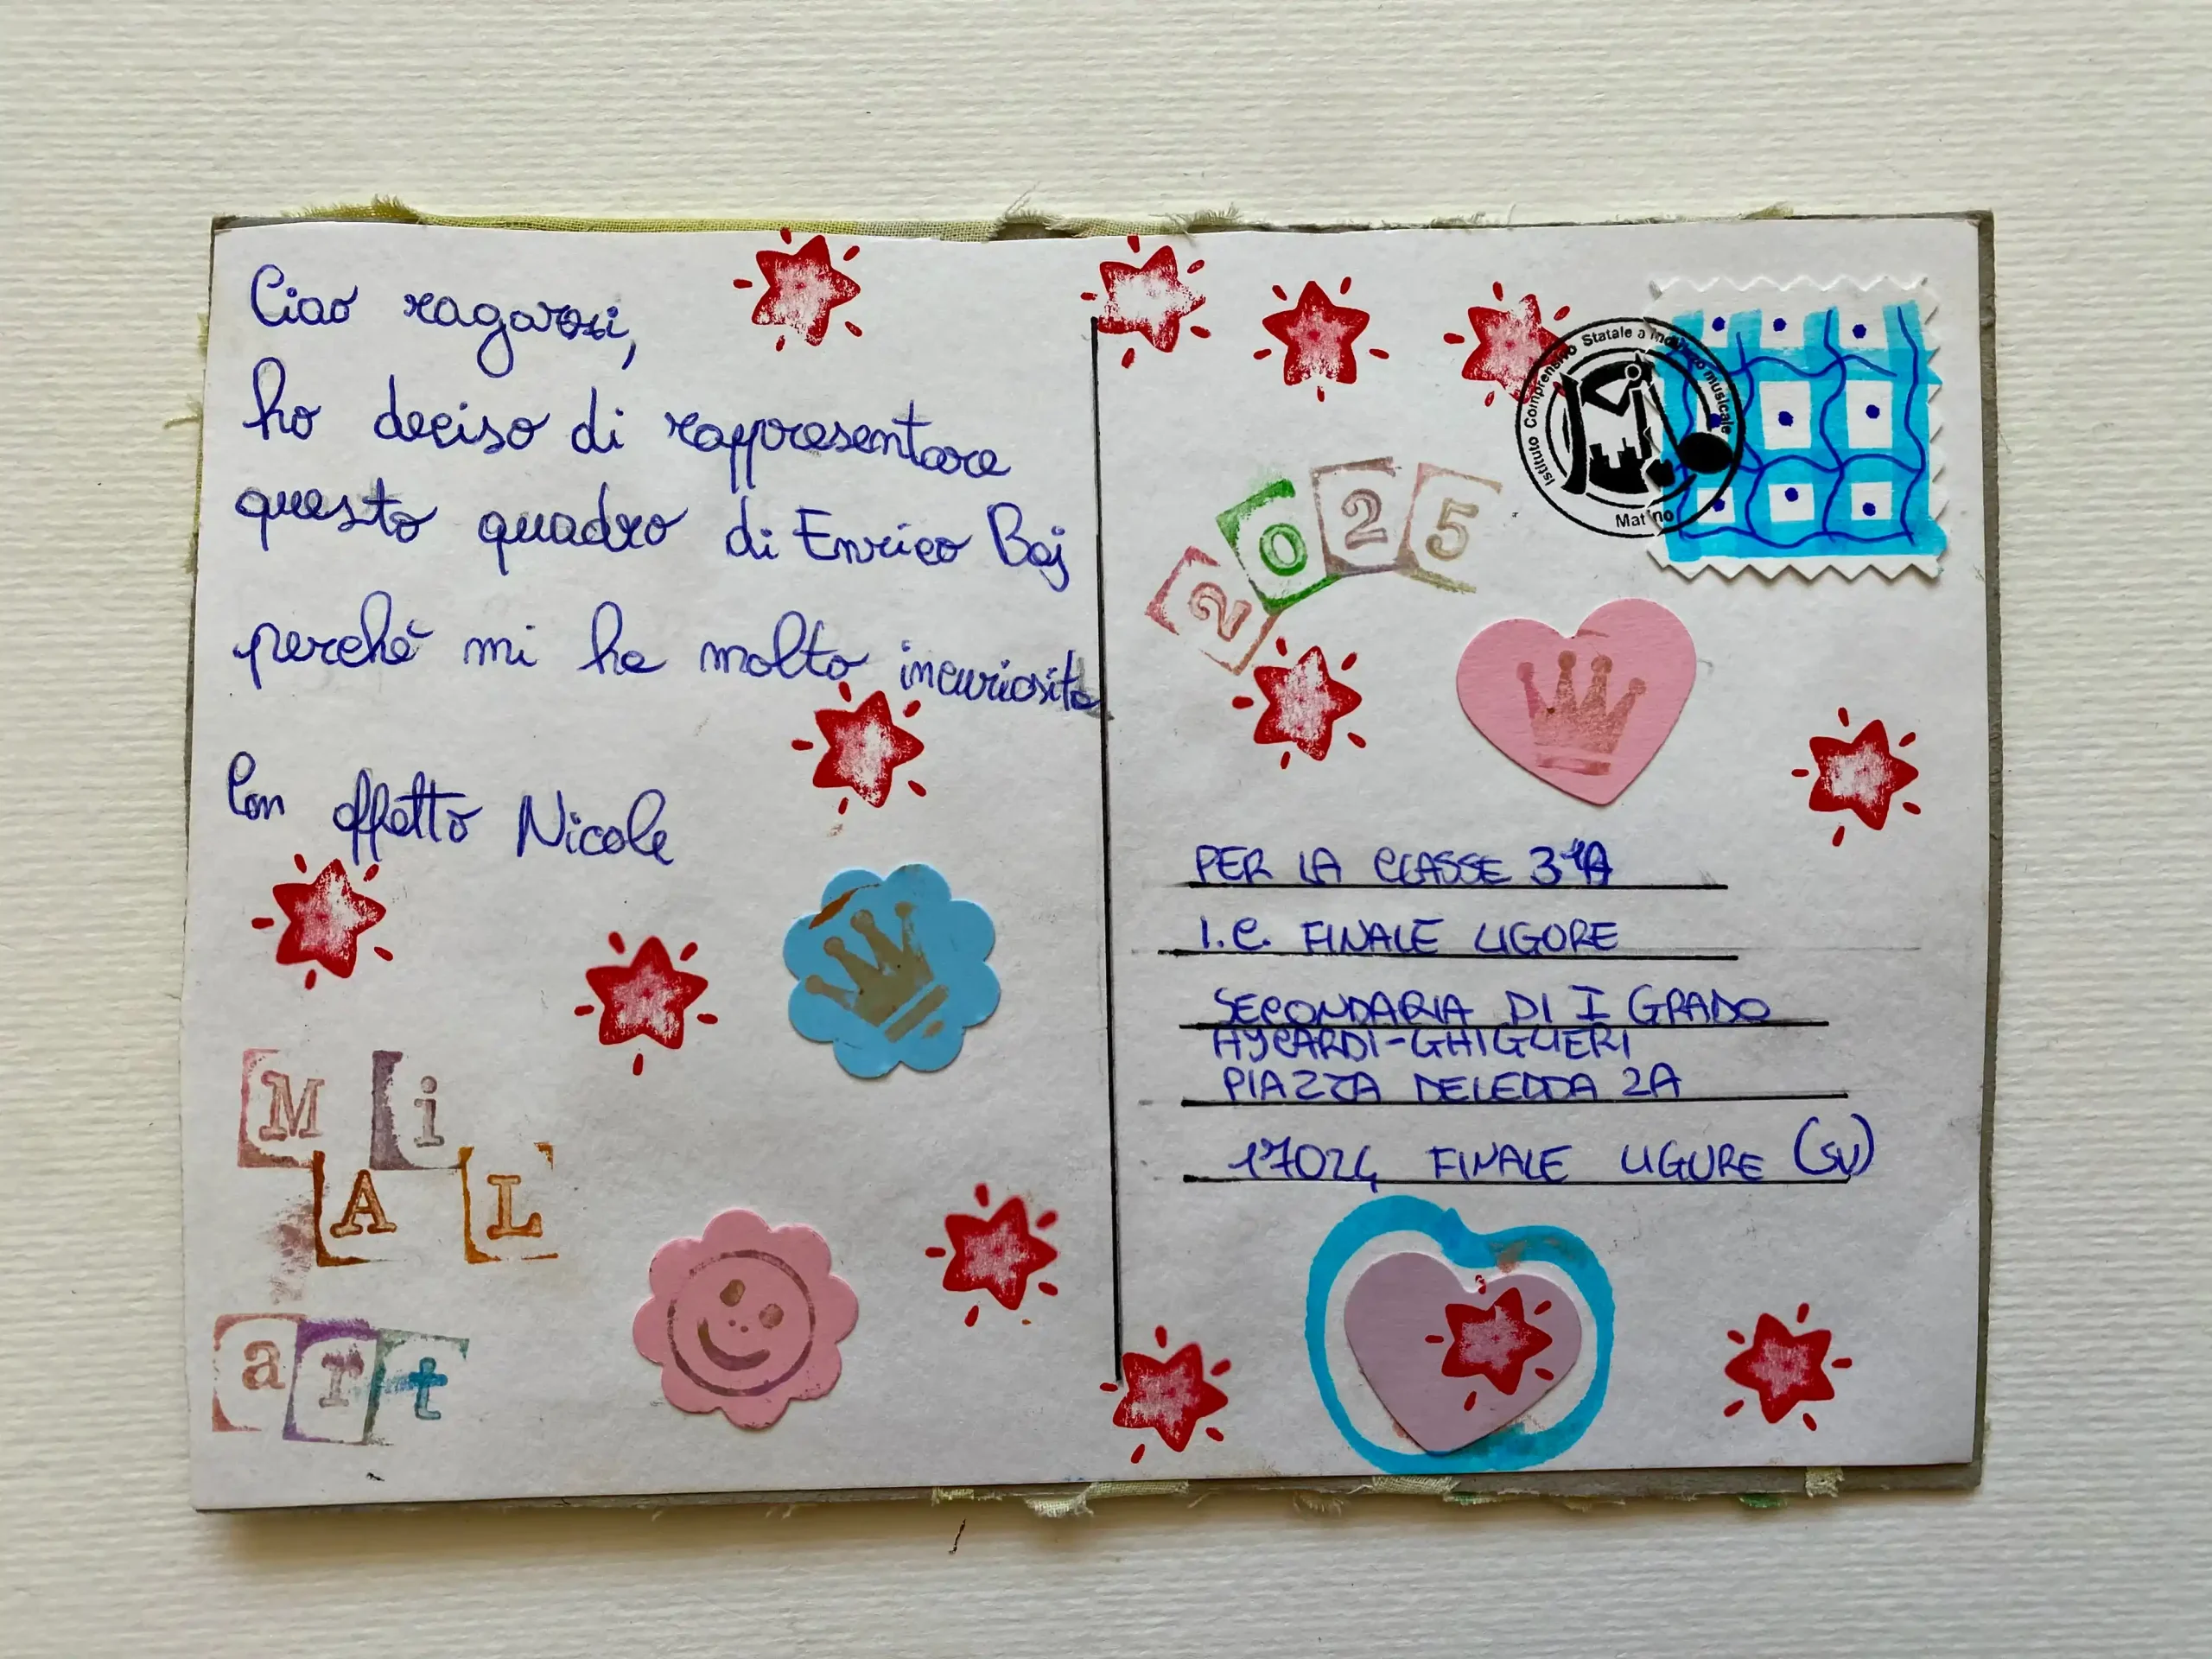 Ciao ragazzi,
ho deciso di rappresentare
questo quadro di Enrico Baj
perchè mi ha molto incuriosito
Con affetto Nicole
Mi
AL
art
2025
Istituto Comprensivo Statale a indirizzo musicale
Matino
PER LA CLASSE 3ªA
I.C. FINALE LIGORE
SECONDARIA DI I GRADO
AYCARDI-GHIGLIERI
PIAZZA DELEDDA 2A
17024 FINALE LIGURE (SV)